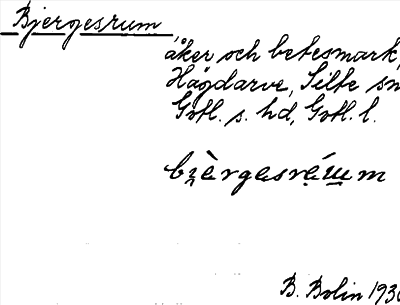 Bjergesrum,
åker och betesmark,
Hägdarve, Silte sn
Gotl. s. hd, Gotl. l.
bi̯èrgesréu̯m
B. Bolin 193